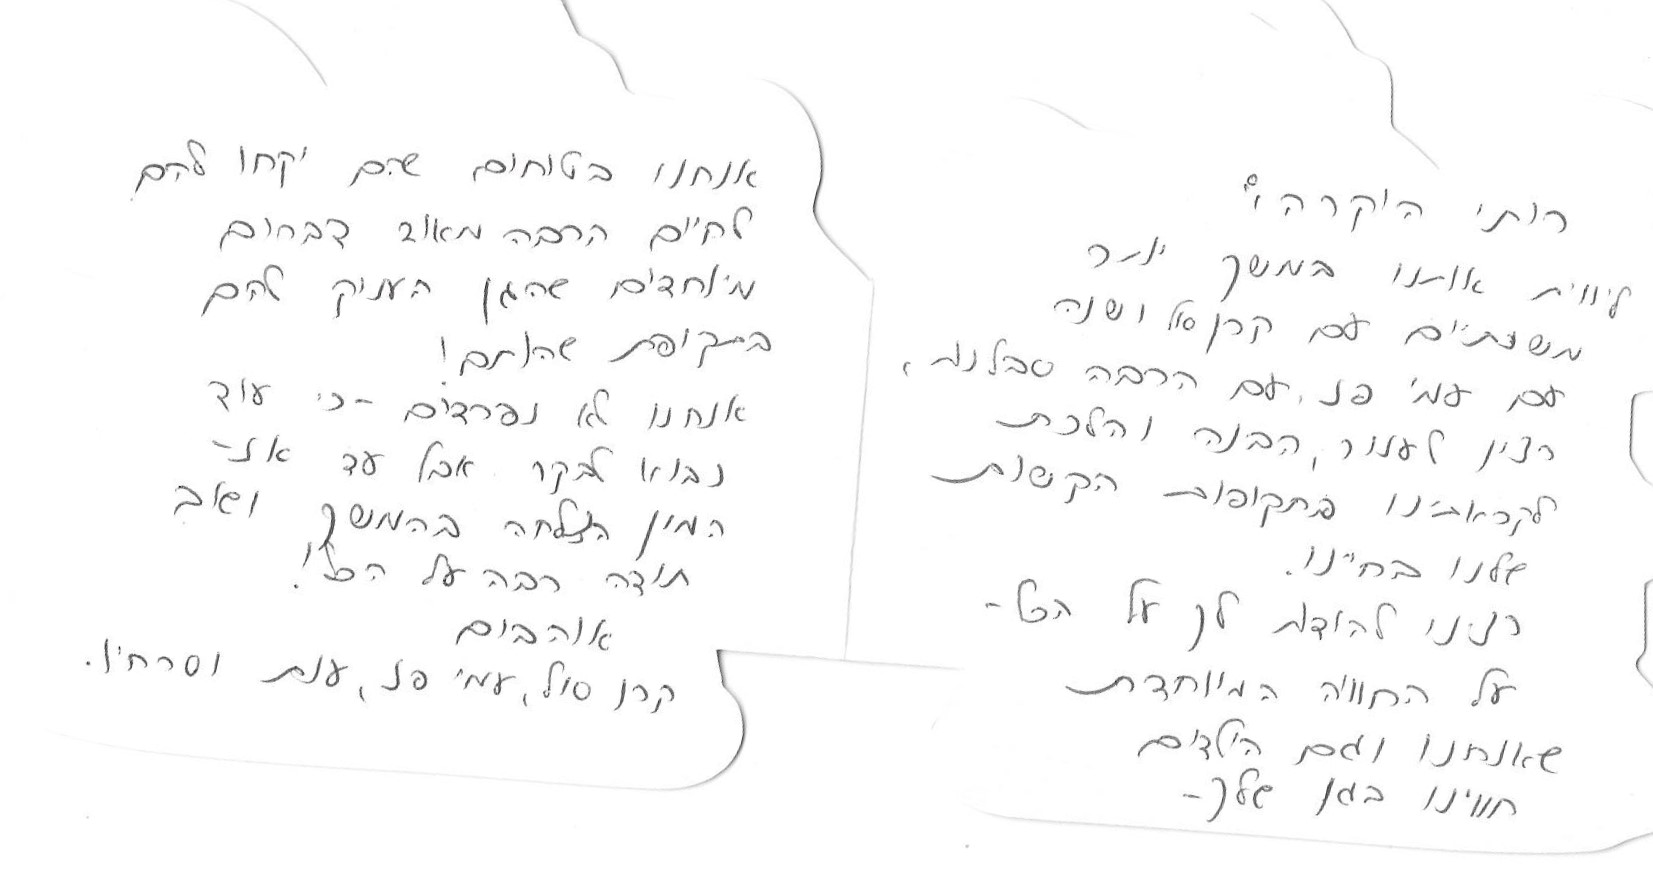 רותי היקרה,
ליווית אותנו במשך יותר
משנתיים עם קרן סול ושנה
עם עמי פז, עם הרבה סבלנות,
רצון לעזור, הבנה והלכת
לקראתינו בתקופות הקשות
שלנו בחיינו.
רצינו להודות לך על הכל -
על החוויה המיוחדת
שאנחנו וגם הילדים
חווינו בגן שלך -
אנחנו בטוחים שהם יקחו להם
לחיים הרבה מאוד דברים
מיוחדים שהגן העניק להם
בתקופת שהותם!
אנחנו לא נפרדים - כי עוד
נבוא לבקר אבל עד אז -
המון הצלחה בהמשך ושוב
תודה רבה על הכל!
אוהבים
קרן סול, עמי פז, ענת וסרחיו.